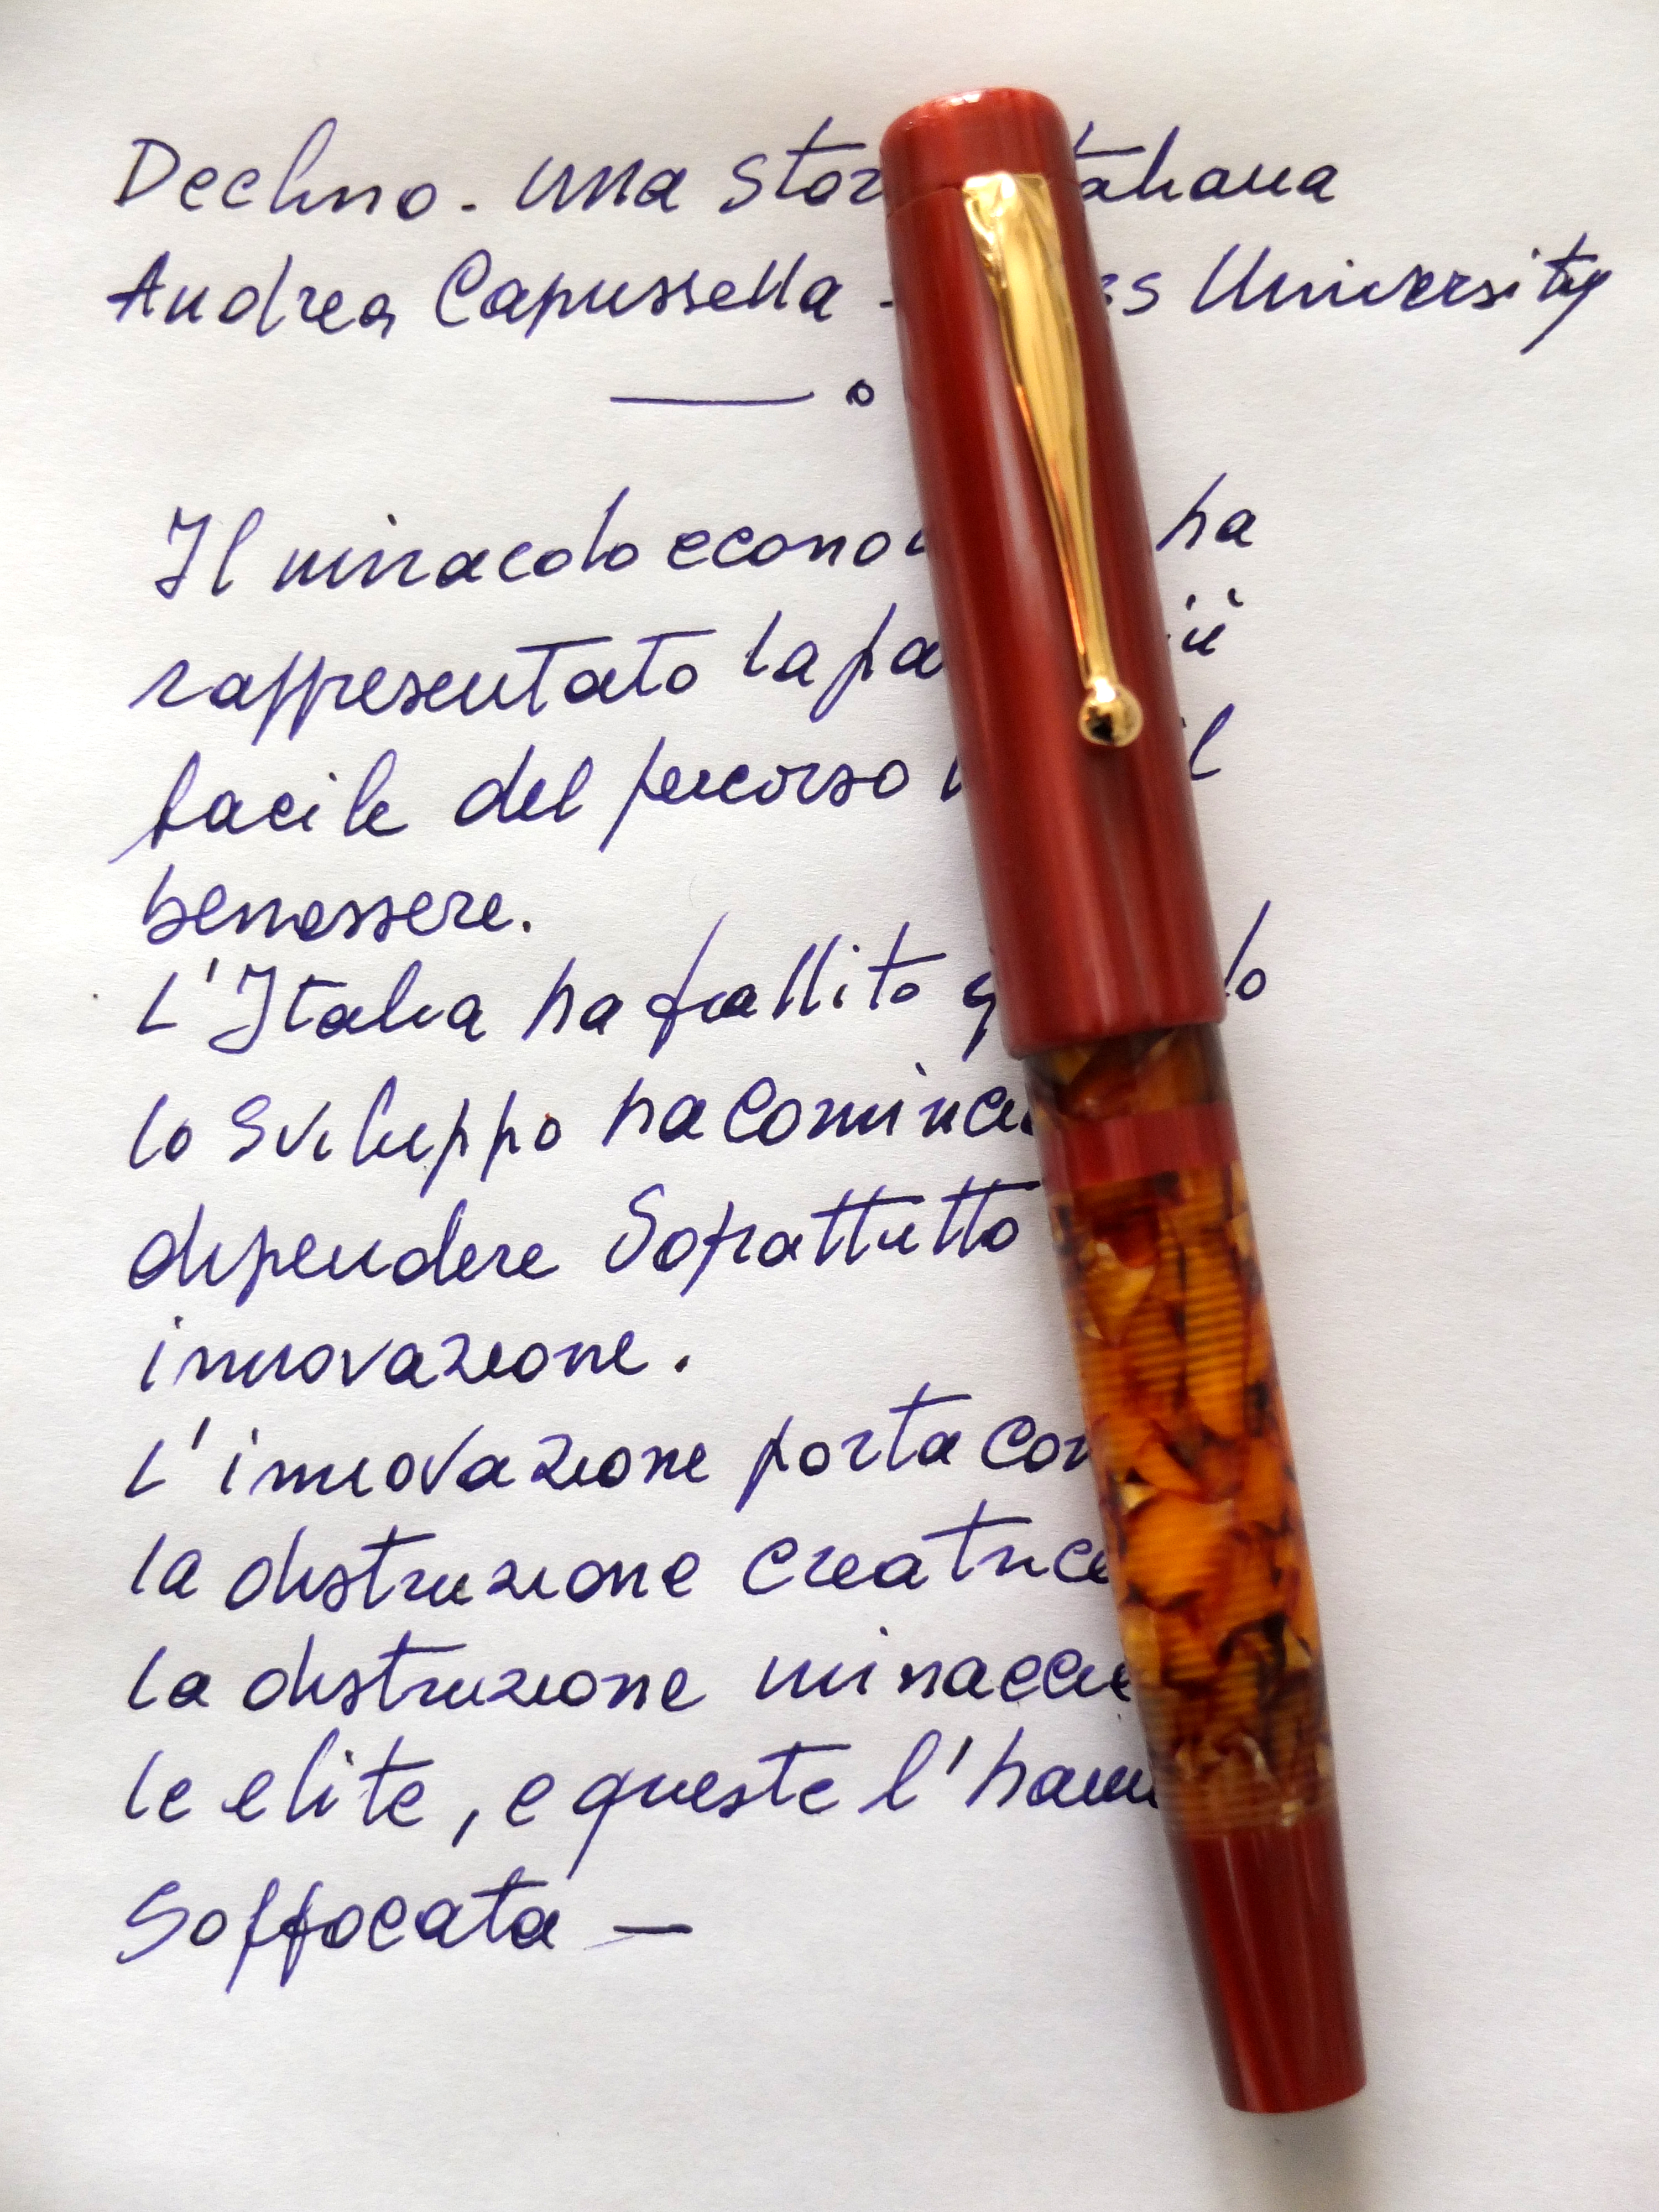 Declino - una storia italiana
Andrea Capussella - Luiss University
Il miracolo economico ha
rappresentato la parte più
facile del percorso verso il
benessere.
L'Italia ha fallito quando
lo sviluppo ha cominciato a
dipendere Soprattutto
innovazione.
L'innovazione porta con
la distruzione creatrice
la distruzione minaccia
le elite, e queste l'hanno
Soffocata —